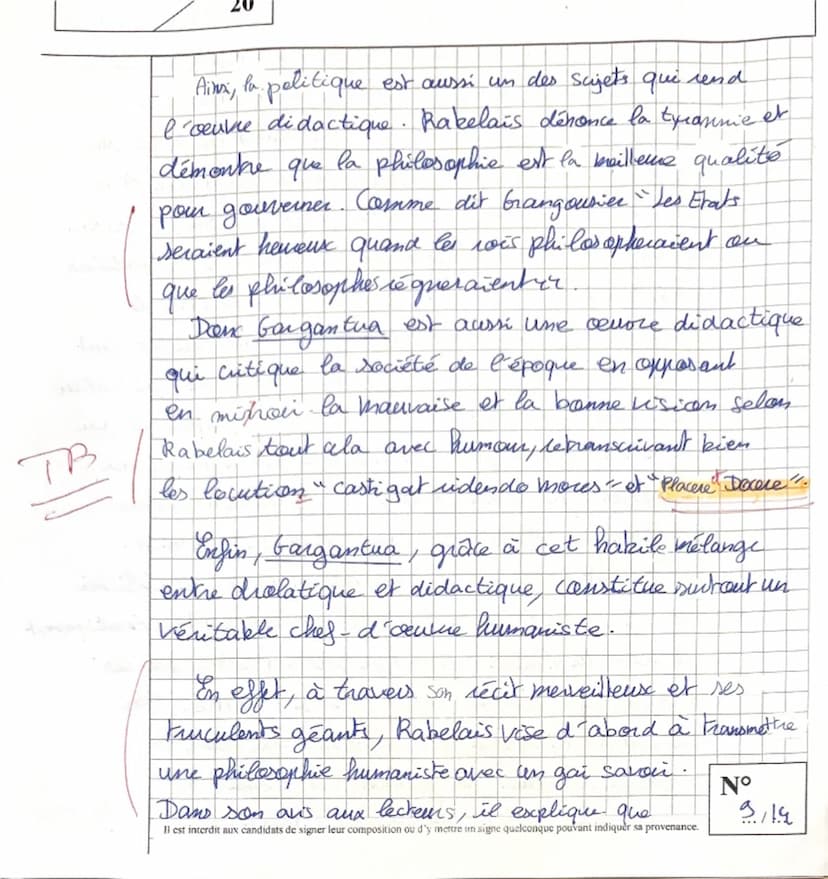 20
Ainsi, la politique est aussi un des sujets qui rend
l'œuvre didactique. Rabelais dénonce la tyrannie et
démontre que la philosophie est la meilleure qualité
pour gouverner. Comme dit Grangousier "Les Etats
seraient heureux quand les rois philosopheraient ou
que les philosophes règneraient".
Donc Gargantua est aussi une œuvre didactique
qui critique la société de l'époque en opposant
en miroir la mauvaise et la bonne vision selon
Rabelais tout cela avec humour, retranscrivant bien
TB
les locution "castigat ridendo mores" et "Placere et Docere".
Enfin, Gargantua, grâce à cet habile mélange
entre drolatique et didactique, constitue surtout un
véritable chef-d'œuvre humaniste.
En effet, à travers son récit merveilleux et ses
truculents géants, Rabelais vise d'abord à transmettre
une philosophie humaniste avec un gai savoir.
Dans son avis aux lecteurs, il explique que
N°
9/14
Il est interdit aux candidats de signer leur composition ou d'y mettre un signe quelconque pouvant indiquer sa provenance.